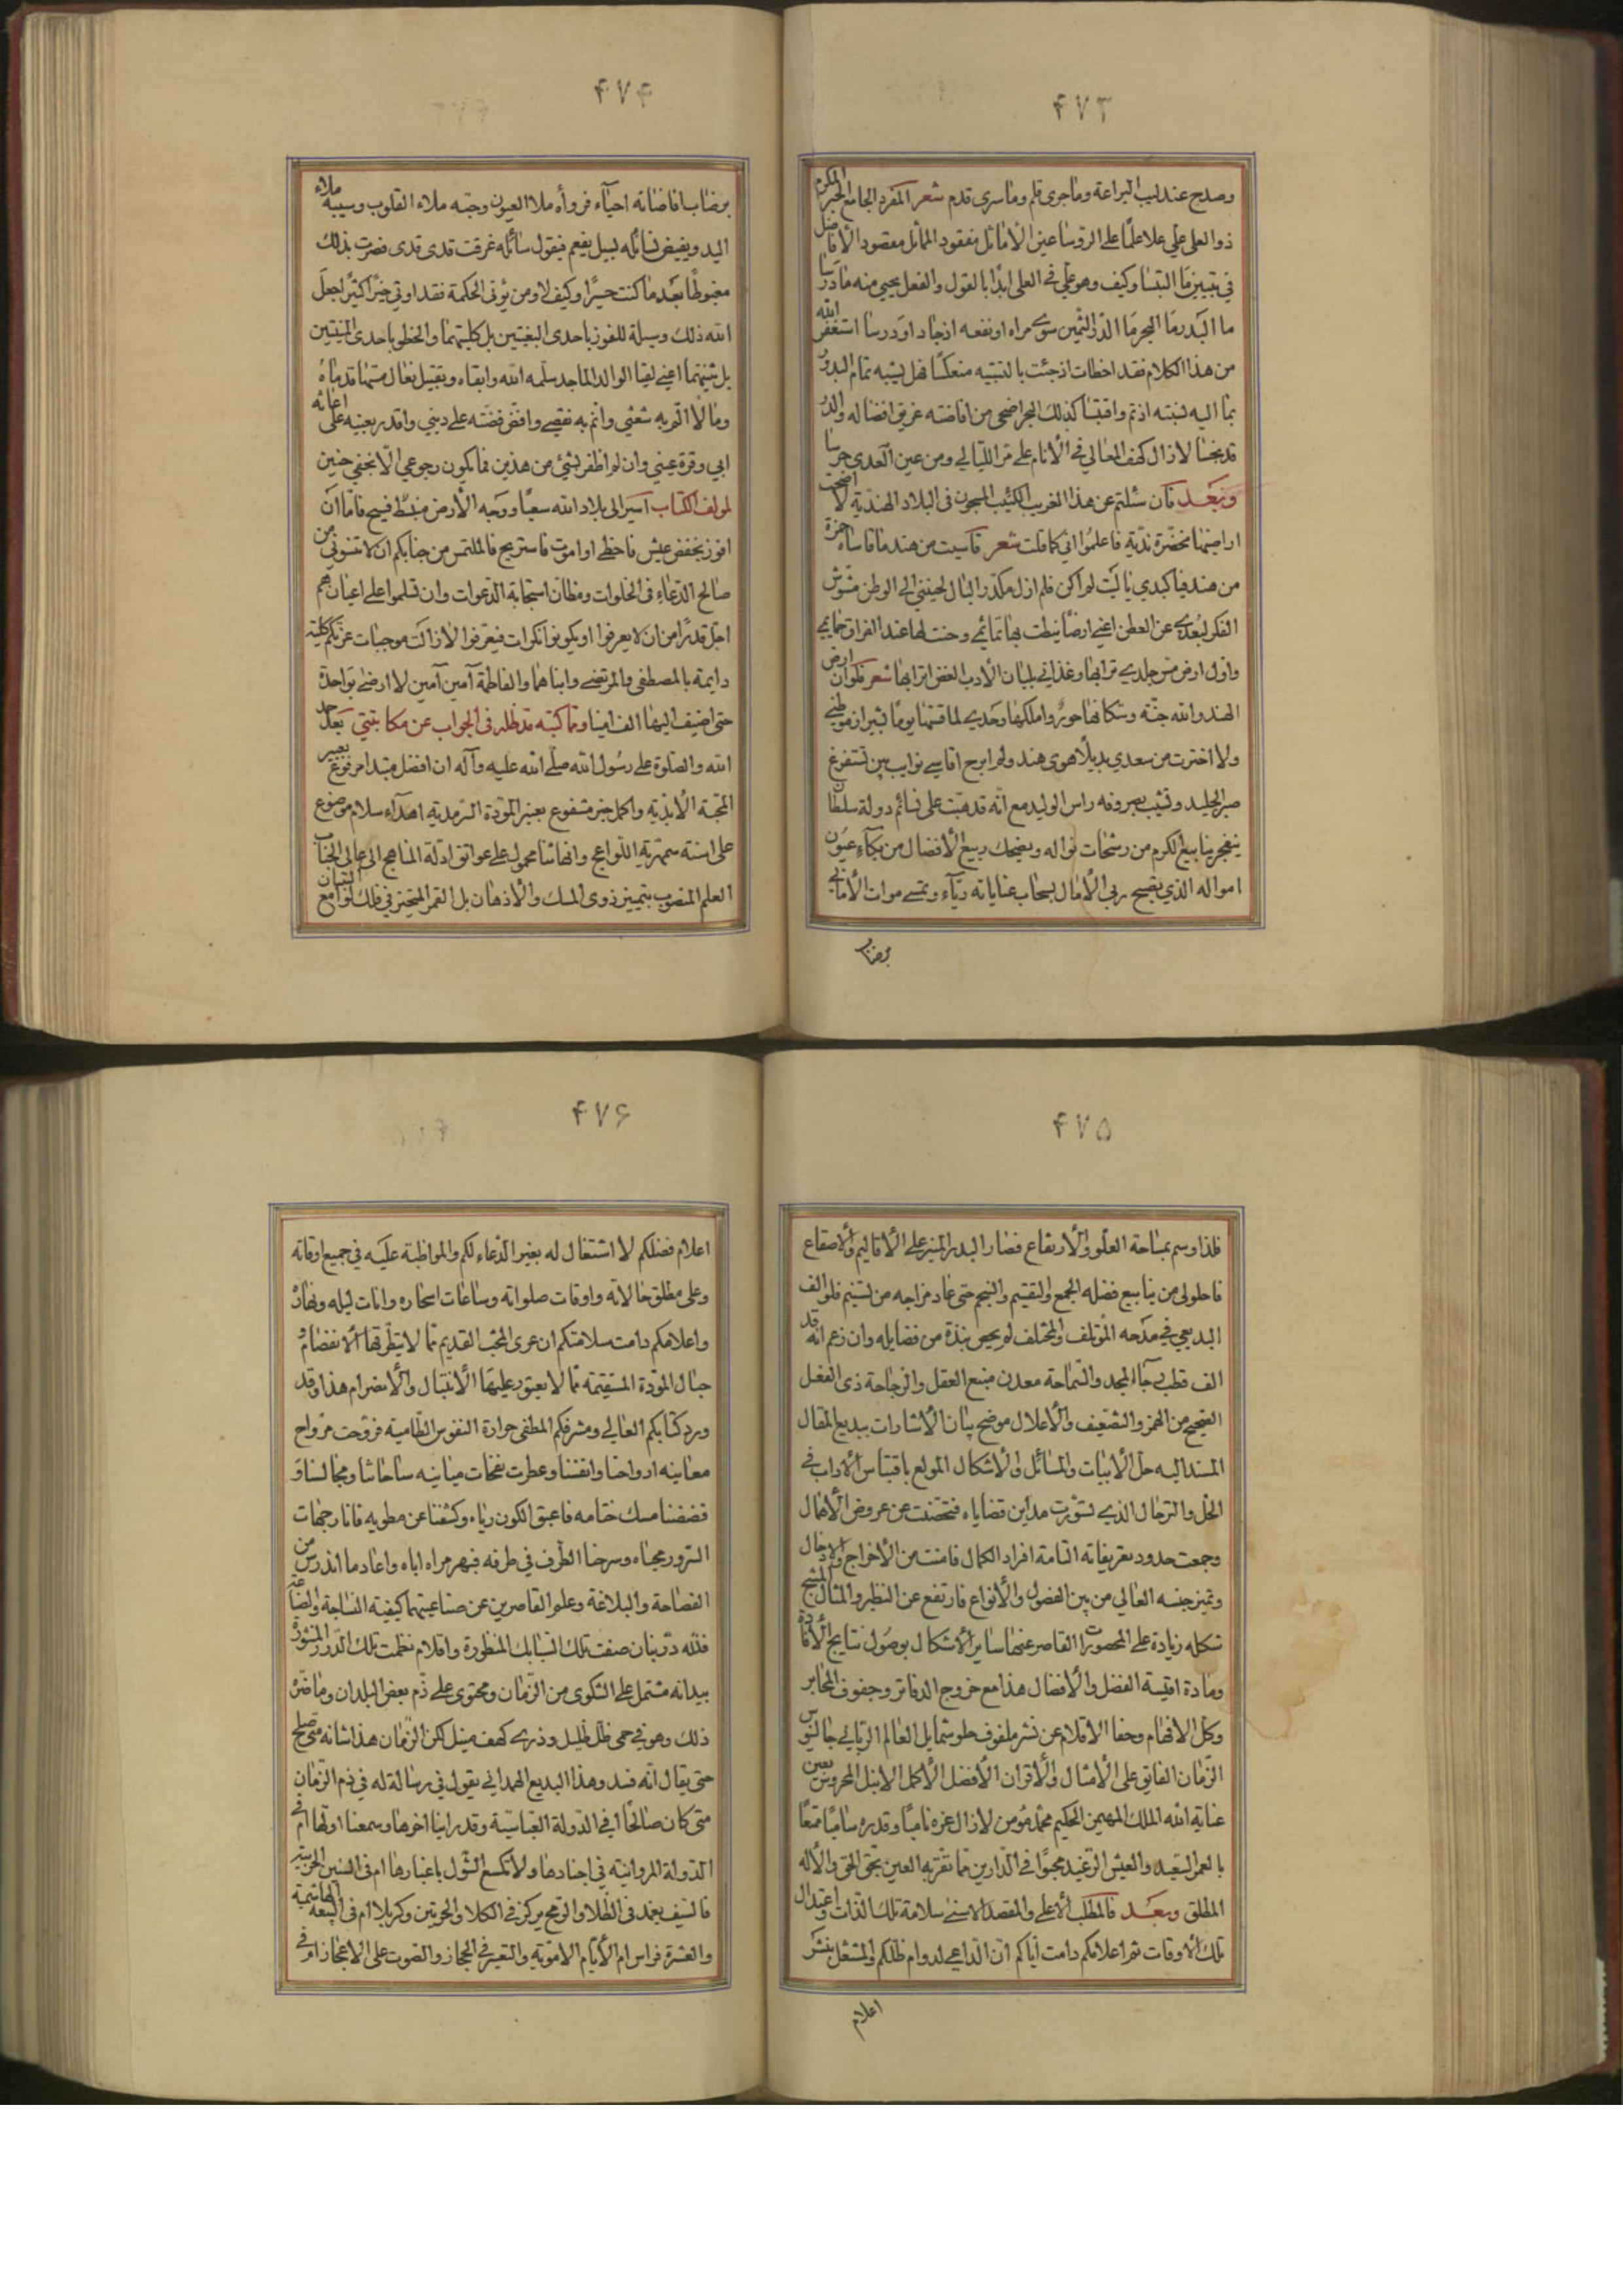 ۴۷۳
وصدح عندليب البراعة وما جرى قلم وما سرى قدم شعر المفرد الجامع الحبر المكرم
ذو العلى علي علا علمًا على الرؤسا عين الأماثل مفقود المماثل مقصود الأفاضل
في تبيين ما التبسا وكيف وهو علي في العلى ابدا بالقول والفعل يحيي منه ما درسا
ما البدر ما البحر ما الدر الثمين سوى مراه او نفعه اذ جاد او درسا استغفر الله
من هذا الكلام فقد اخطات اذ جئت بالتشبيه منعكسًا فهل يشبه تمام البدر
بما اليه نسبته اذ تم واقتبسا كذلك البحر اضحى من افاضته غريق افضاله والدر
قد بخسا لا زال كهف المعالي في الأنام على مر الليالي ومن عين العدى حرسا
وبعد فان سئلتم عن هذا الغريب الكئيب المسجون في البلاد الهندية لا اضحت
اراضيها مخضرة ندية فاعلموا اني كما قلت شعر قاسيت من هند ما قاساه حمزة
من هند فيا كبدي يا ليت لم اكن فلم ازل مكدر البال لحنيني الى الوطن مشوش
الفكر لبعدي عن العطن اعني ارضًا نيطت بها تمائمي وحنت لها عند الفراق حمايمي
واول ارض مس جلدي ترابها وغذاني بلبان الأدب الغض اترابها شعر فلو ان ارض
الهند والله جنة وسكانها حور واملكها وحدي لما قستها يومًا بشيراز موطني
ولا اخترت من سعدي بديلا هوى هند ولم ابرح اقاسي نوايب بين تستفرغ
صبر الجليد وتشيب بصروفه راس الوليد مع انه قد هبت على نسائم دولة سلطان
ينفجر ينابيع الكرم من رشحات نواله ويضحك ربيع الأفضال من بكاء عيون
امواله الذي يصبح ربى الآمال بسحاب عناياته ريآء وتمسي موات الأماني
برضاب
۴۷۴
برضاب افاضاته احيآء فروأه ملا العيون وحبه ملاء القلوب وسيبه ملاء
اليد ويفيض لسائله بسيل يفعم فيقول سائله غرقت قدى قدى فصرت بذلك
مغبوطًا بعد ما كنت حسيرًا وكيف لا ومن يؤتى الحكمة فقد اوتي خيرًا كثيرًا جعل
الله ذلك وسيلة للفوز باحدى البغيتين بل كلتيهما والخطو باحدى المنيتين
بل ثنيتهما اعني لقيا الوالد الماجد سلمه الله وابقاه وتقبيل نعال مستها قدماه
ومالا الم به شعثي واتم به نقصي وافض فضته على ديني واقدر بعينه على اعانة
ابي وقرة عيني وان لم اظفر بشئ من هذين فما يكون رجوعي الا بخفي حنين
لمؤلف الكتاب اسير الى بلاد الله سعيًا ووجه الأرض منبسط فسيح فاما ان
افوز بخفض عيش فاحظى او اموت فاستريح فالملتمس من جنابكم ان لا تنسوني من
صالح الدعاء في الخلوات ومظان استجابة الدعوات وان تسلموا على اعيان هم
اجل قدرًا من ان لا يعرفوا او يكونوا نكرات فيعرفوا لا زالت موجبات عزتكم كلية
دايمة بالمصطفى والمرتضى وابناهما والفاطمة آمين آمين لا ارضى بواحدة
حتى اضيف اليها الف امينا ومما كتبه مد ظله في الجواب عن مكاتبتي بعد حمد
الله والصلوة على رسول الله صلى الله عليه وآله ان افضل مبتدا مرفوع بعبير
المحبة الأبدية واكمل خبر مشفوع بعنبر المودة السرمدية اهداء سلام موضوع
على اسنة سمهرية اللواعج وانهاء ثنا محمول على عواتق ادلة المناهج الى عالى الجناب
العلم المنصوب بتمييز ذوي المسك والأذهان بل القمر المتحيز في فلك لوامع التبيان
۴۷۵
فلذا وسم بمساحة العلو والأرتفاع فصار البدر المنير على الأقاليم والأصقاع
فاحلولى من ينابيع فضله الجمع والتقسيم والنجم حتى عاد مزاجه من تسنيم فلو الف
البديعي في مدحه المؤتلف والمختلف لم يحص نبذة من فضايله وان زعم انه قد
الف قطب رحآ المجد والسماحة معدن منبع العقل والرجاحة ذى الفعل
الصحيح من الهمز والتضعيف والأعلال موضح بيان الأشارات ببديع المقال
المسند اليه حل الأبيات والمسائل والأشكال المولع باقتباس الآداب في
الحل والترحال الذي تسورت مداين قضاياه فتحصنت عن عروض الأهمال
وجمعت حدود تعريفاته التامة افراد الكمال فامنت من الأخراج والأدخال
وتميز جنسه العالي من بين الفصول والأنواع فارتفع عن النظير والمثال المنتج
شكله زيادة على المحصورات القاصر عنها ساير الأشكال بوصول نتايج الأفادة
ومادة اقيسة الفضل والأفضال هذا مع خروج الدفاتر وجفوف المحابر
وكل الافهام وحفا الاقلام عن نشر ملفوف حلو شمايل العالم الرباني جالينوس
الزمان الفايق على الأمثال والأقران الأفضل الأكمل الانبل المحروس بعين
عناية الله الملك المهيمن الحكيم محمد مؤمن لا زال عزه ناميًا وقدره ساميًا ممتعًا
بالعمر السعيد والعيش الرغيد محبوًّا في الدارين مما تقر به العين بحق الحق والأله
المطلق وبعد فالمطلب الأعلى والمقصد الاسنى سلامة تلك الذات واعتدال
تلك الاوقات ثم اعلامكم دامت اياكم ان الداعي لدوام ظلكم والمشتغل بنشر
اعلام
۴۷۶
اعلام فضلكم لا اشتغال له بغير الدعاء لكم والمواظبة عليه في جميع اوقاته
وعلى مطلق حالاته واوقات صلواته وساعات اسحاره وانات ليله ونهاره
واعلامكم دامت سلامتكم ان عرى المحب القديم مما لا يتطرقها الأنفصام و
حبال المودة المستقيمة مما لا يعبق وعليها الأنبتال والأنصرام هذا وقد
ورد كتابكم العالي ومشرفكم المطفي حرارة النفوس الظامية فروحت مراوح
معانيه ارواحنا وانفسنا وعطرت نفحات مبانيه ساحاتنا ومجالسنا و
فضضنا مسك ختامه فاعبق الكون رياه وكشفنا عن مطويه فانار جهات
السرور محياه وسرحنا الطرف في طرفه فبهر مراه اياه واعاد ما اندرس من
الفصاحة والبلاغة وعلو القاصرين عن صناعيتهما كيفية النساجة والصياغة
فلله در بنان صفت تلك السبايك المنظورة واقلام نظمت تلك الدرر المنثورة
بيد انه مشتمل على الشكوى من الزمان ومحتوى على ذم بعض البلدان وما ضره
ذلك وهو في حمى ظل ظليل وذرى كهف منيل لكن الزمان هذا شانه متى صلح
حتى يقال انه فسد وهذا البديع الهمداني يقول في رسالة له في ذم الزمان
متى كان صالحًا افي الدولة العباسية وقد راينا اخرها وسمعنا اولها ام في
الدولة المروانية في اجنادها ولا تكسع الشول باغبارها ام في السنين الحربية
فالسيف يغمد في الطلا والرمح يركز في الكلا والحرتين وكربلا ام في البيعة الهاشمية
والعشرة فراس ام الأيام الاموية والنفير في الحجاز والصوت على الاعجاز ام في